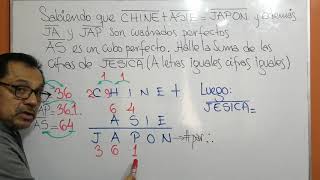 Sabiendo que CHINE + ASIE = JAPON y además
JA y JAP son cuadrados perfectos
AS es un cubo perfecto. Halle la Suma de las
cifras de JESICA (A letras iguales cifras iguales)
1 1
36 2 9 C H I N E +
JAP = 361. 6 4
AS = 64 A S I E
J A P O N → # par ∴
3 6 1
Luego:
JESICA =